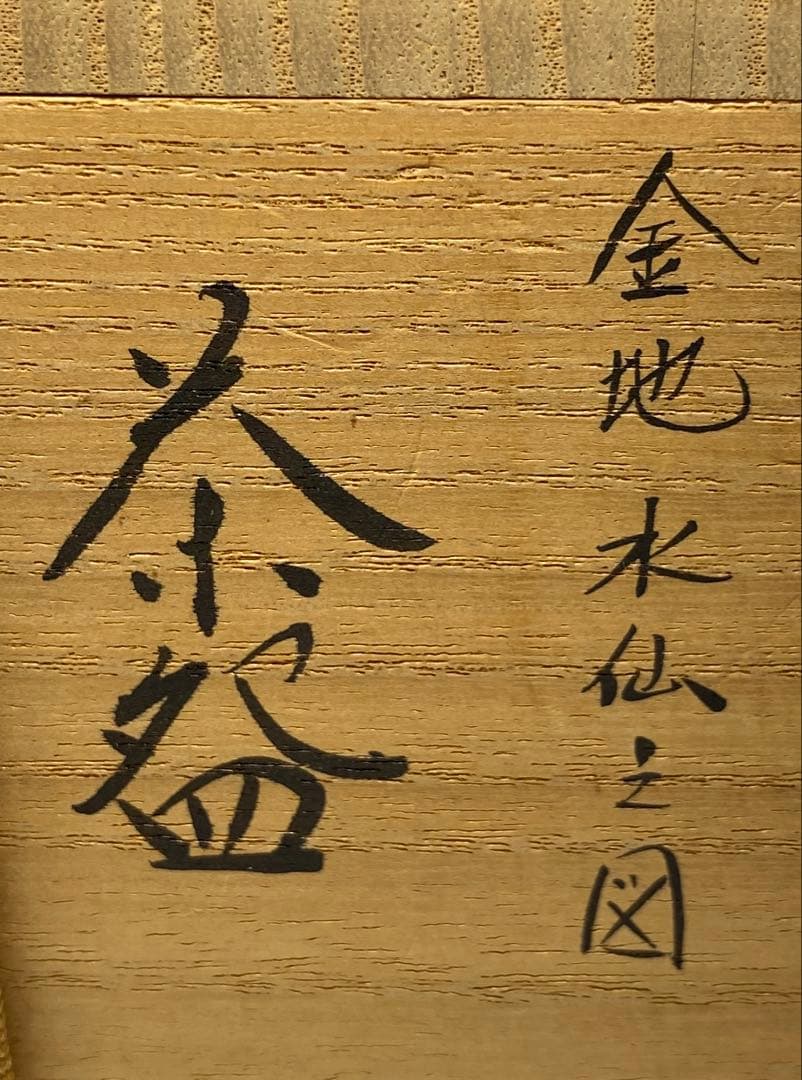 金地水仙之図
茶盌